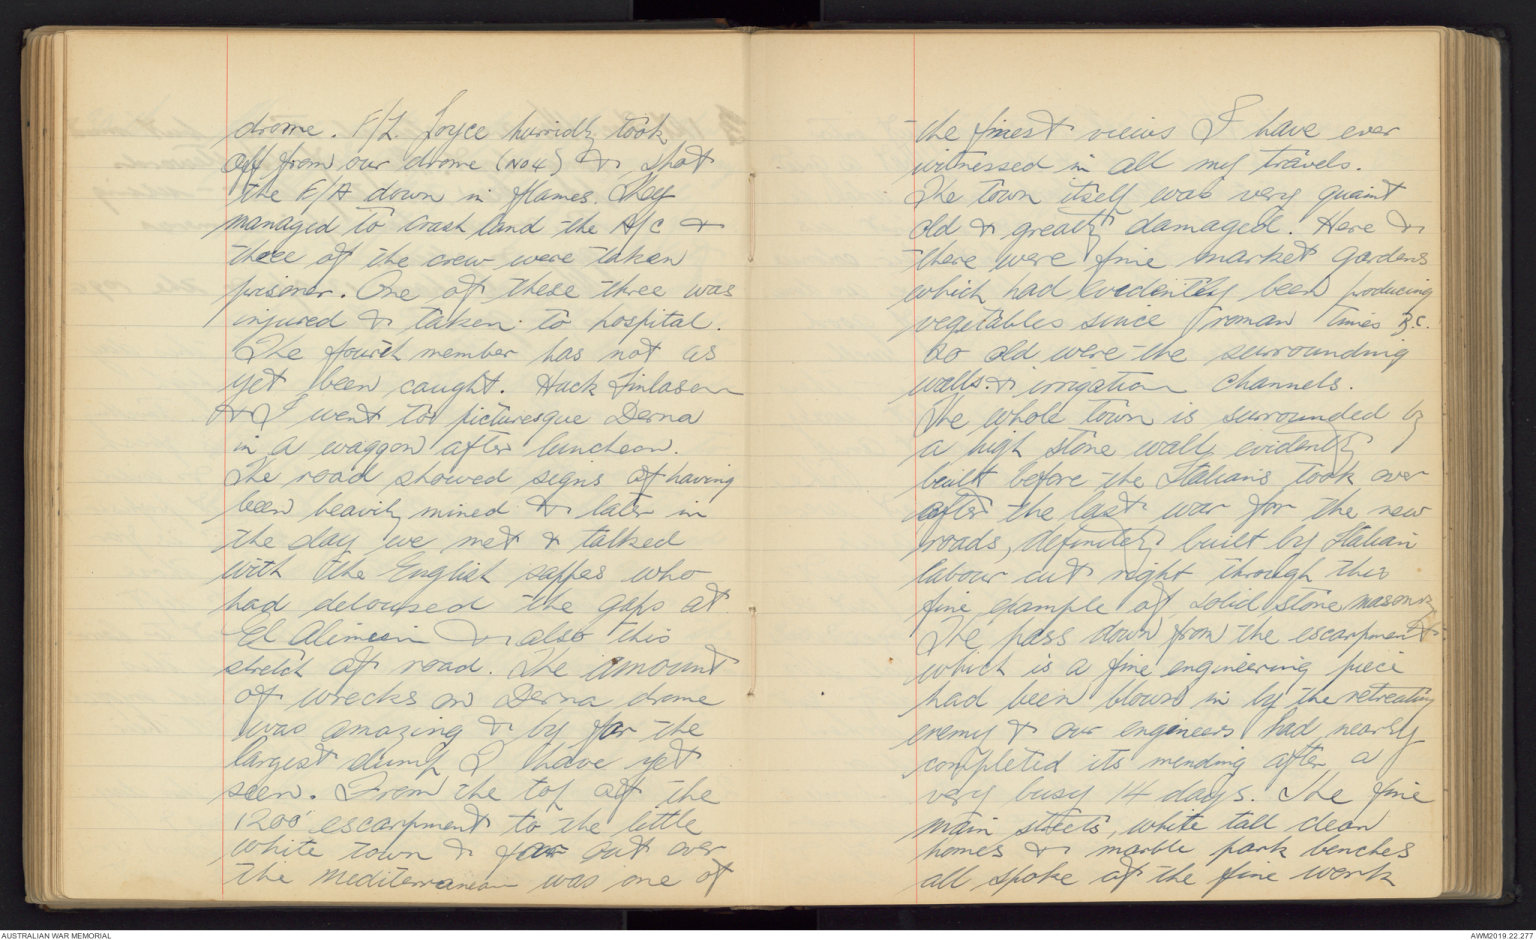 drome. F/L. Joyce hurridly took
off from our drome (No 4) & shot
the E/A down in flames. They
managed to crash land the A/C &
three of the crew were taken
prisoner. One of these three was
injured & taken to hospital.
The fourth member has not as
yet been caught. Hack Finlason
& I went to picturesque Derna
in a waggon after luncheon.
The road showed signs of having
been heavily mined & later in
the day we met & talked
with the English sappers who
had deloused the gaps at
El Alimein & also this
stretch of road. The amount
of wrecks on Derna drome
was amazing & by far the
largest dump I have yet
seen. From the top of the
1200' escarpment to the little
white town & far out over
the mediterranean was one of
the finest views I have ever
witnessed in all my travels.
The town itself was very quaint
old & greatly damaged. Here &
there were fine market gardens
which had evidently been producing
vegetables since roman times B.C.
so old were the surrounding
walls & irrigation channels.
The whole town is surrounded by
a high stone wall, evidently
built before the Italians took over
after the last war for the new
roads, definitely built by Italian
labour cut right through this
fine example of solid stone masonry
The pass down from the escarpment
which is a fine engineering piece
had been blown in by the retreating
enemy & our engineers had nearly
completed its mending after a
very busy 14 days. The fine
main streets, white tall clean
homes & marble park benches
all spoke of the fine work
AUSTRALIAN WAR MEMORIAL
AWM2019.22.277